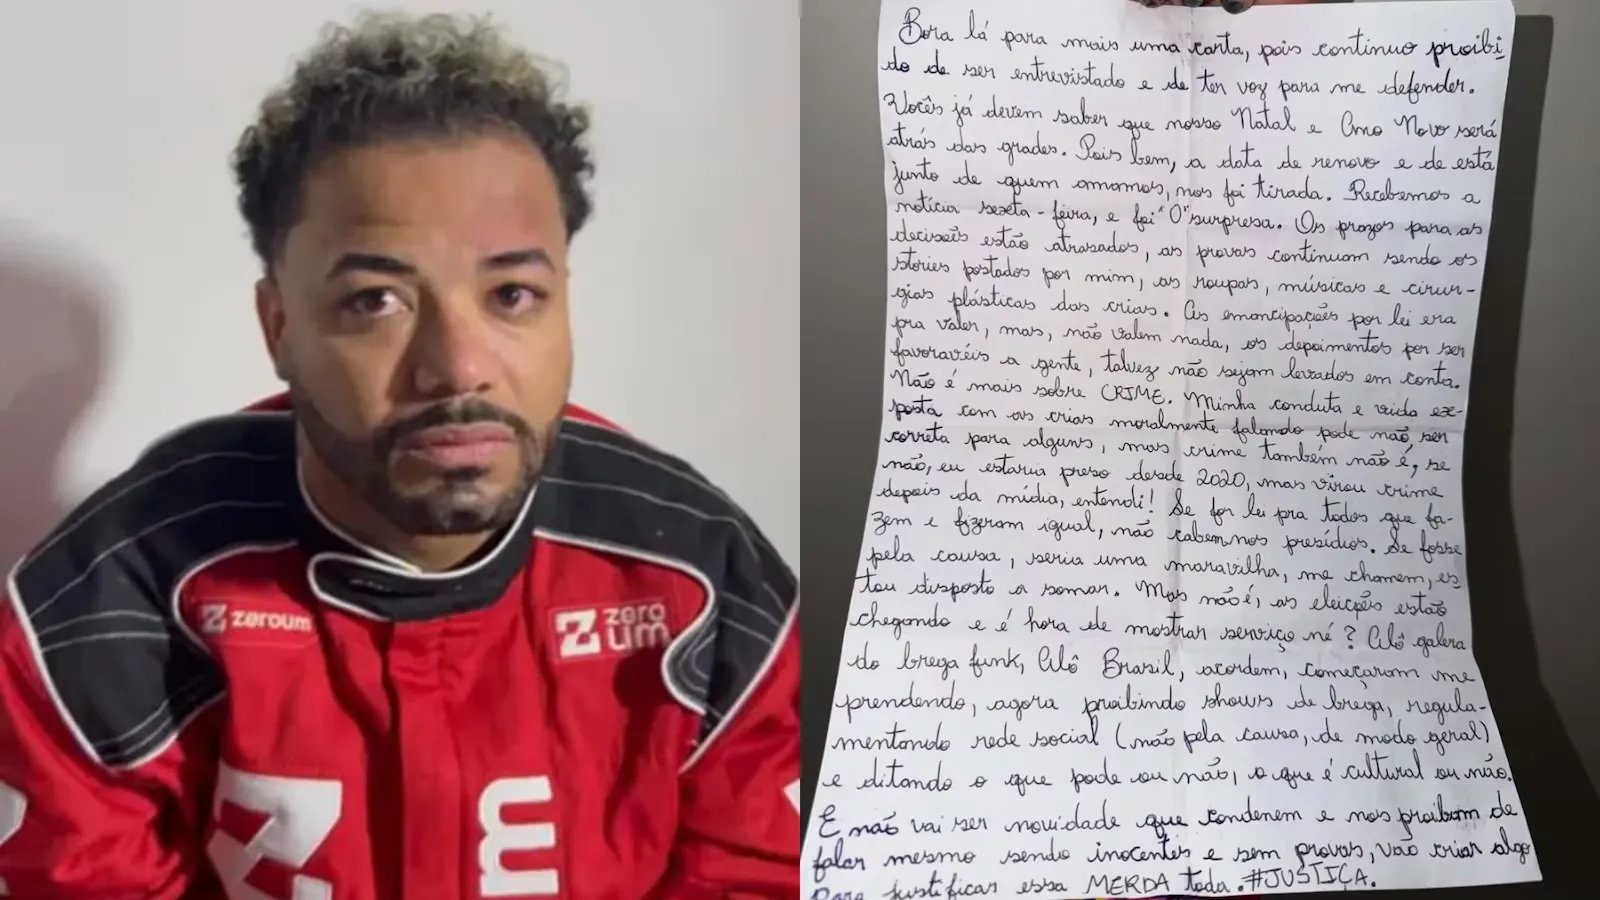 zeroum
zero
um
Bora lá para mais uma carta, pois continuo proibi-
do de ser entrevistado e de ter voz para me defender.
Vocês já devem saber que nosso Natal e Ano Novo será
atrás das grades. Pois bem, a data de renovo e de está
junto de quem amamos, nos foi tirada. Recebemos a
notícia sexta-feira, e foi "O" surpresa. Os prazos para as
decisões estão atrasados, as provas continuam sendo os
stories postados por mim, as roupas, músicas e cirur-
gias plásticas das crias. As emancipações por lei era
pra valer, mas, não valem nada, os depoimentos por ser
favoravéis a gente, talvez não sejam levados em conta.
Não é mais sobre CRIME. Minha conduta e vida ex-
posta com as crias moralmente falando pode não ser
correta para alguns, mas crime também não é, se
não, eu estaria preso desde 2020, mas virou crime
depois da mídia, entendi! Se for lei pra todos que fa-
zem e fizeram igual, não cabem nos presídios. Se fosse
pela causa, seria uma maravilha, me chamem, es-
tou disposto a somar. Mas não é, as eleições estão
chegando e é hora de mostrar serviço né? Alô galera
do brega funk, Alô Brasil, acordem, começaram me
prendendo, agora proibindo shows de brega, regula-
mentando rede social (não pela causa, de modo geral)
e ditando o que pode ou não, o que é cultural ou não.
E não vai ser novidade que condenem e nos proibam de
falar mesmo sendo inocentes e sem provas, vão criar algo
para justificar essa MERDA toda. #JUSTIÇA.